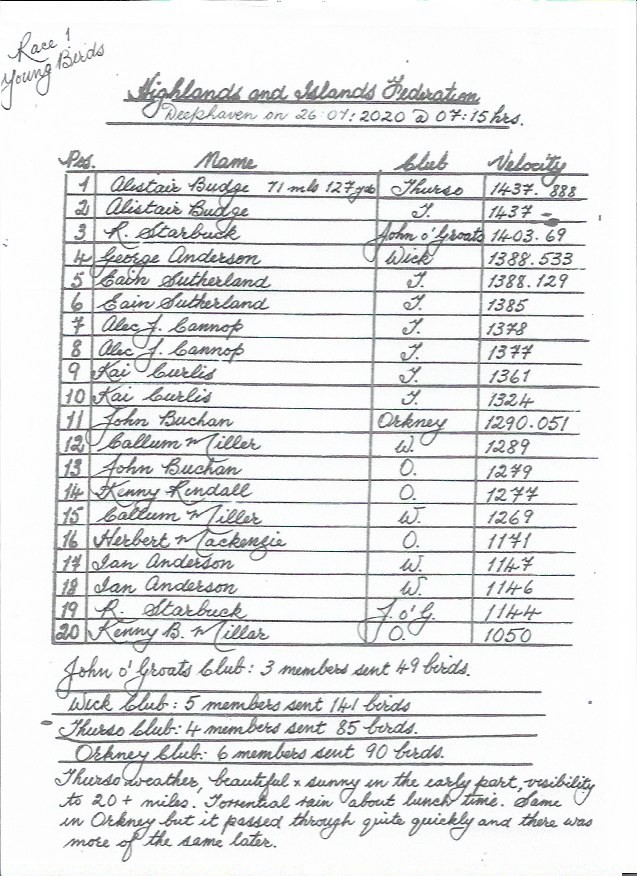 Race 1
Young Birds
Highlands and Islands Federation
Deephaven on 26:07:2020 @ 07:15 hrs.
Pos. Name Club Velocity
1 Alistair Budge 71 mls 127 yds Thurso 1437.888
2 Alistair Budge T. 1437
3 R. Starbuck John o' Groats 1403.69
4 George Anderson Wick 1388.533
5 Eain Sutherland T. 1388.129
6 Eain Sutherland T. 1385
7 Alec J. Cannop T. 1378
8 Alec J. Cannop T. 1377
9 Kai Curtis T. 1361
10 Kai Curtis T. 1324
11 John Buchan Orkney 1290.051
12 Callum Miller W. 1289
13 John Buchan O. 1279
14 Kenny Rendall O. 1277
15 Callum Miller W. 1269
16 Herbert Mackenzie O. 1171
17 Ian Anderson W. 1147
18 Ian Anderson W. 1146
19 R. Starbuck J. o' G. 1144
20 Kenny B. Millar O. 1050
John o' Groats Club: 3 members sent 49 birds.
Wick Club: 5 members sent 141 birds
Thurso Club: 4 members sent 85 birds.
Orkney Club: 6 members sent 90 birds.
Thurso weather, beautiful & sunny in the early part, visibility
to 20+ miles. Torrential rain about lunch time. Same
in Orkney but it passed through quite quickly and there was
more of the same later.